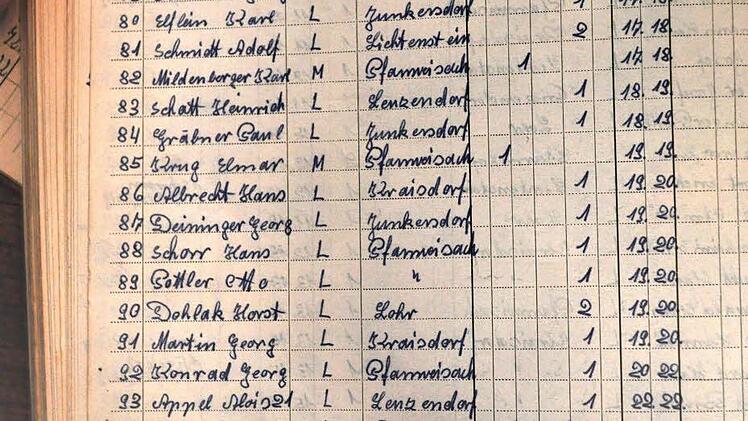 80 Elflein Karl L Junkersdorf 1 17. 18.
81 Schmidt Adolf L Lichtenstein 2 17. 18.
82 Mildenberger Karl M Pfarrweisach 1 17. 18.
83 Schatt Heinrich L Lenzendorf 1 18. 19
84 Gräbner Paul L Junkersdorf 1 18. 19
85 Krug Elmar M Pfarrweisach 1 19. 19.
86 Albrecht Hans L Kraisdorf 1 19. 20.
87 Deininger Georg L Junkersdorf 1 19. 20.
88 Schorr Hans L Pfarrweisach 1 19. 20.
89 Pottler Otto L " 1 19. 20.
90 Dohlak Horst L Lohr 2 19. 20.
91 Martin Georg L Kraisdorf 1 19. 20.
92 Konrad Georg L Pfarrweisach 1 20 22.
93 Appel Alois 21 L Lenzendorf 1 22 22.